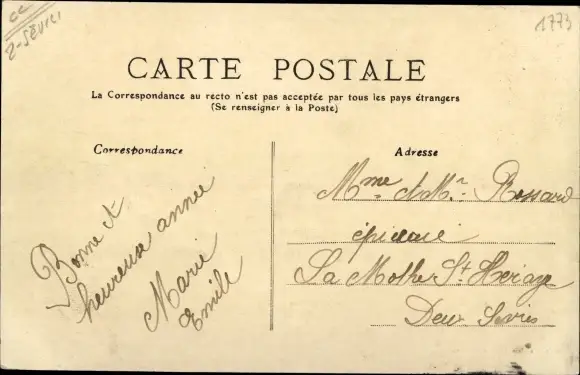 CC
2-Sèvres
1773
CARTE POSTALE
La Correspondance au recto n'est pas acceptée par tous les pays étrangers
(Se renseigner à la Poste)
Correspondance
Adresse
Bonne et
heureuse année
Marie
Emile
Mme et Mr
La Mothe St Heraye
Deux Sèvres